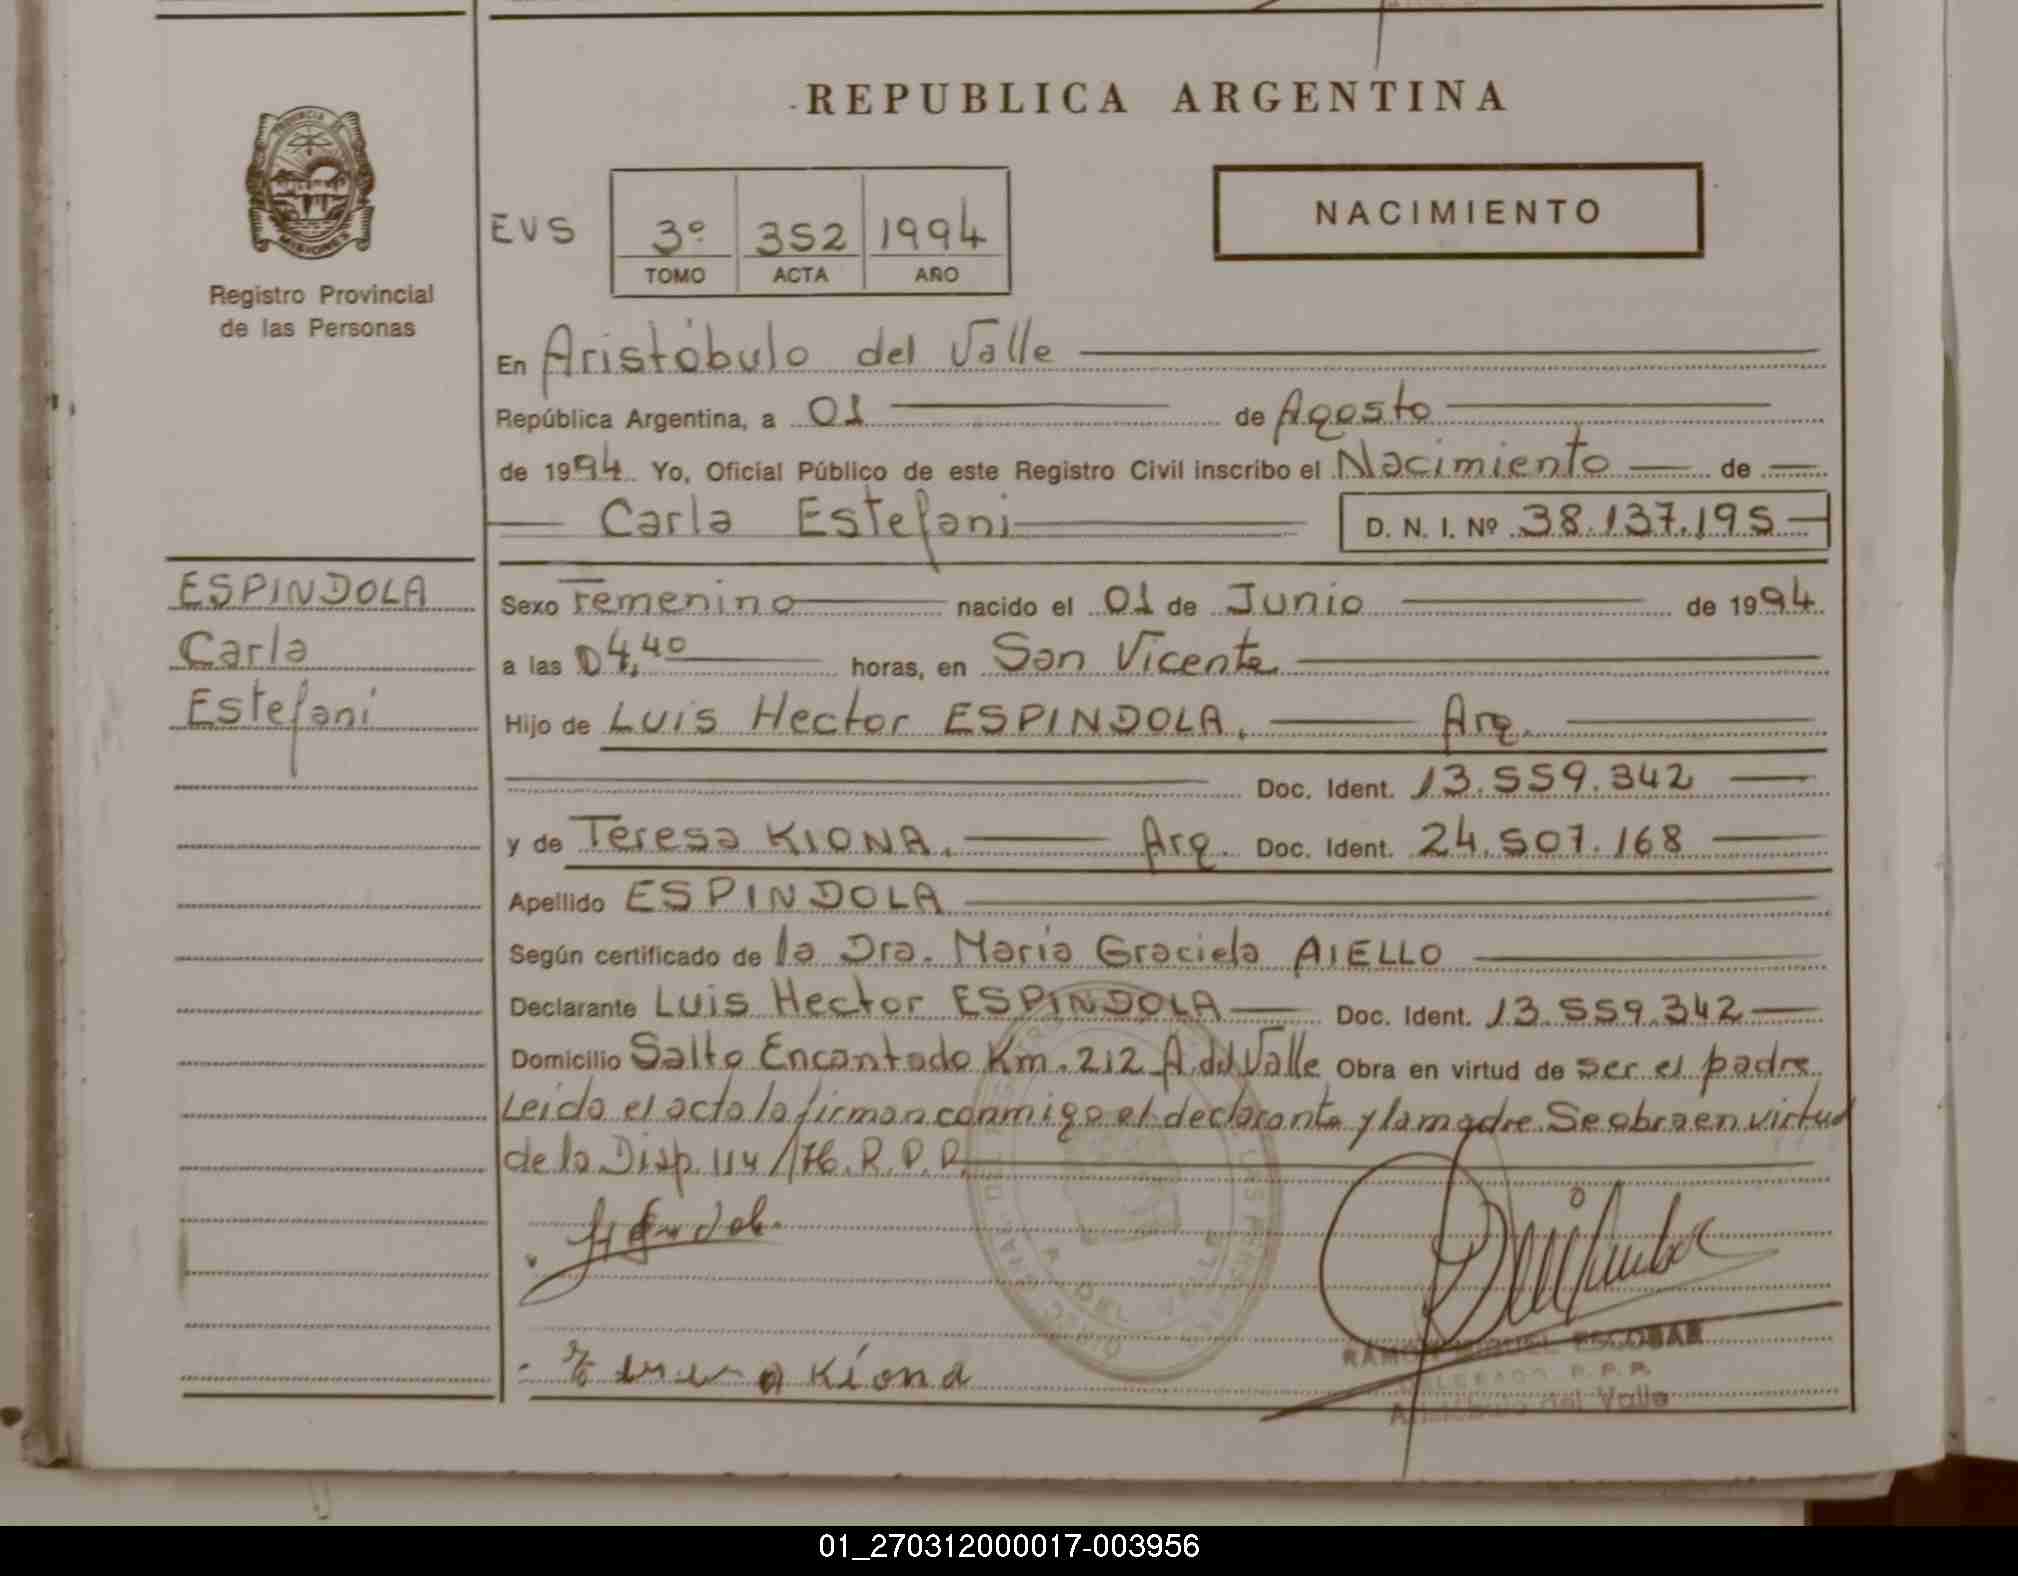 REPUBLICA ARGENTINA
PROVINCIA DE
MISIONES
Registro Provincial
de las Personas
EVS
3º 352 1994
TOMO ACTA AÑO
NACIMIENTO
En Aristóbulo del Valle
República Argentina, a 01 de Agosto
de 1994. Yo, Oficial Público de este Registro Civil inscribo el Nacimiento de
Carla Estefani D. N. I. Nº 38.137.195
ESPINDOLA
Carla
Estefani
Sexo Femenino nacido el 01 de Junio de 1994.
a las 04,40 horas, en San Vicente
Hijo de Luis Hector ESPINDOLA, Arg.
Doc. Ident. 13.559.342
y de Teresa KIONA, Arg. Doc. Ident. 24.507.168
Apellido ESPINDOLA
Según certificado de la Dra. Maria Graciela AIELLO
Declarante Luis Hector ESPINDOLA Doc. Ident. 13.559.342
Domicilio Salto Encantado Km. 212 A. del Valle Obra en virtud de ser el padre
Leida el acta la firman conmigo el declarante y la madre. Se obra en virtud
de la Disp. 114/76. R. P. P.
Kiona
RAMON MIGUEL ESCOBAR
DELEGADO R.P.P.
Aristóbulo del Valle
01_270312000017-003956